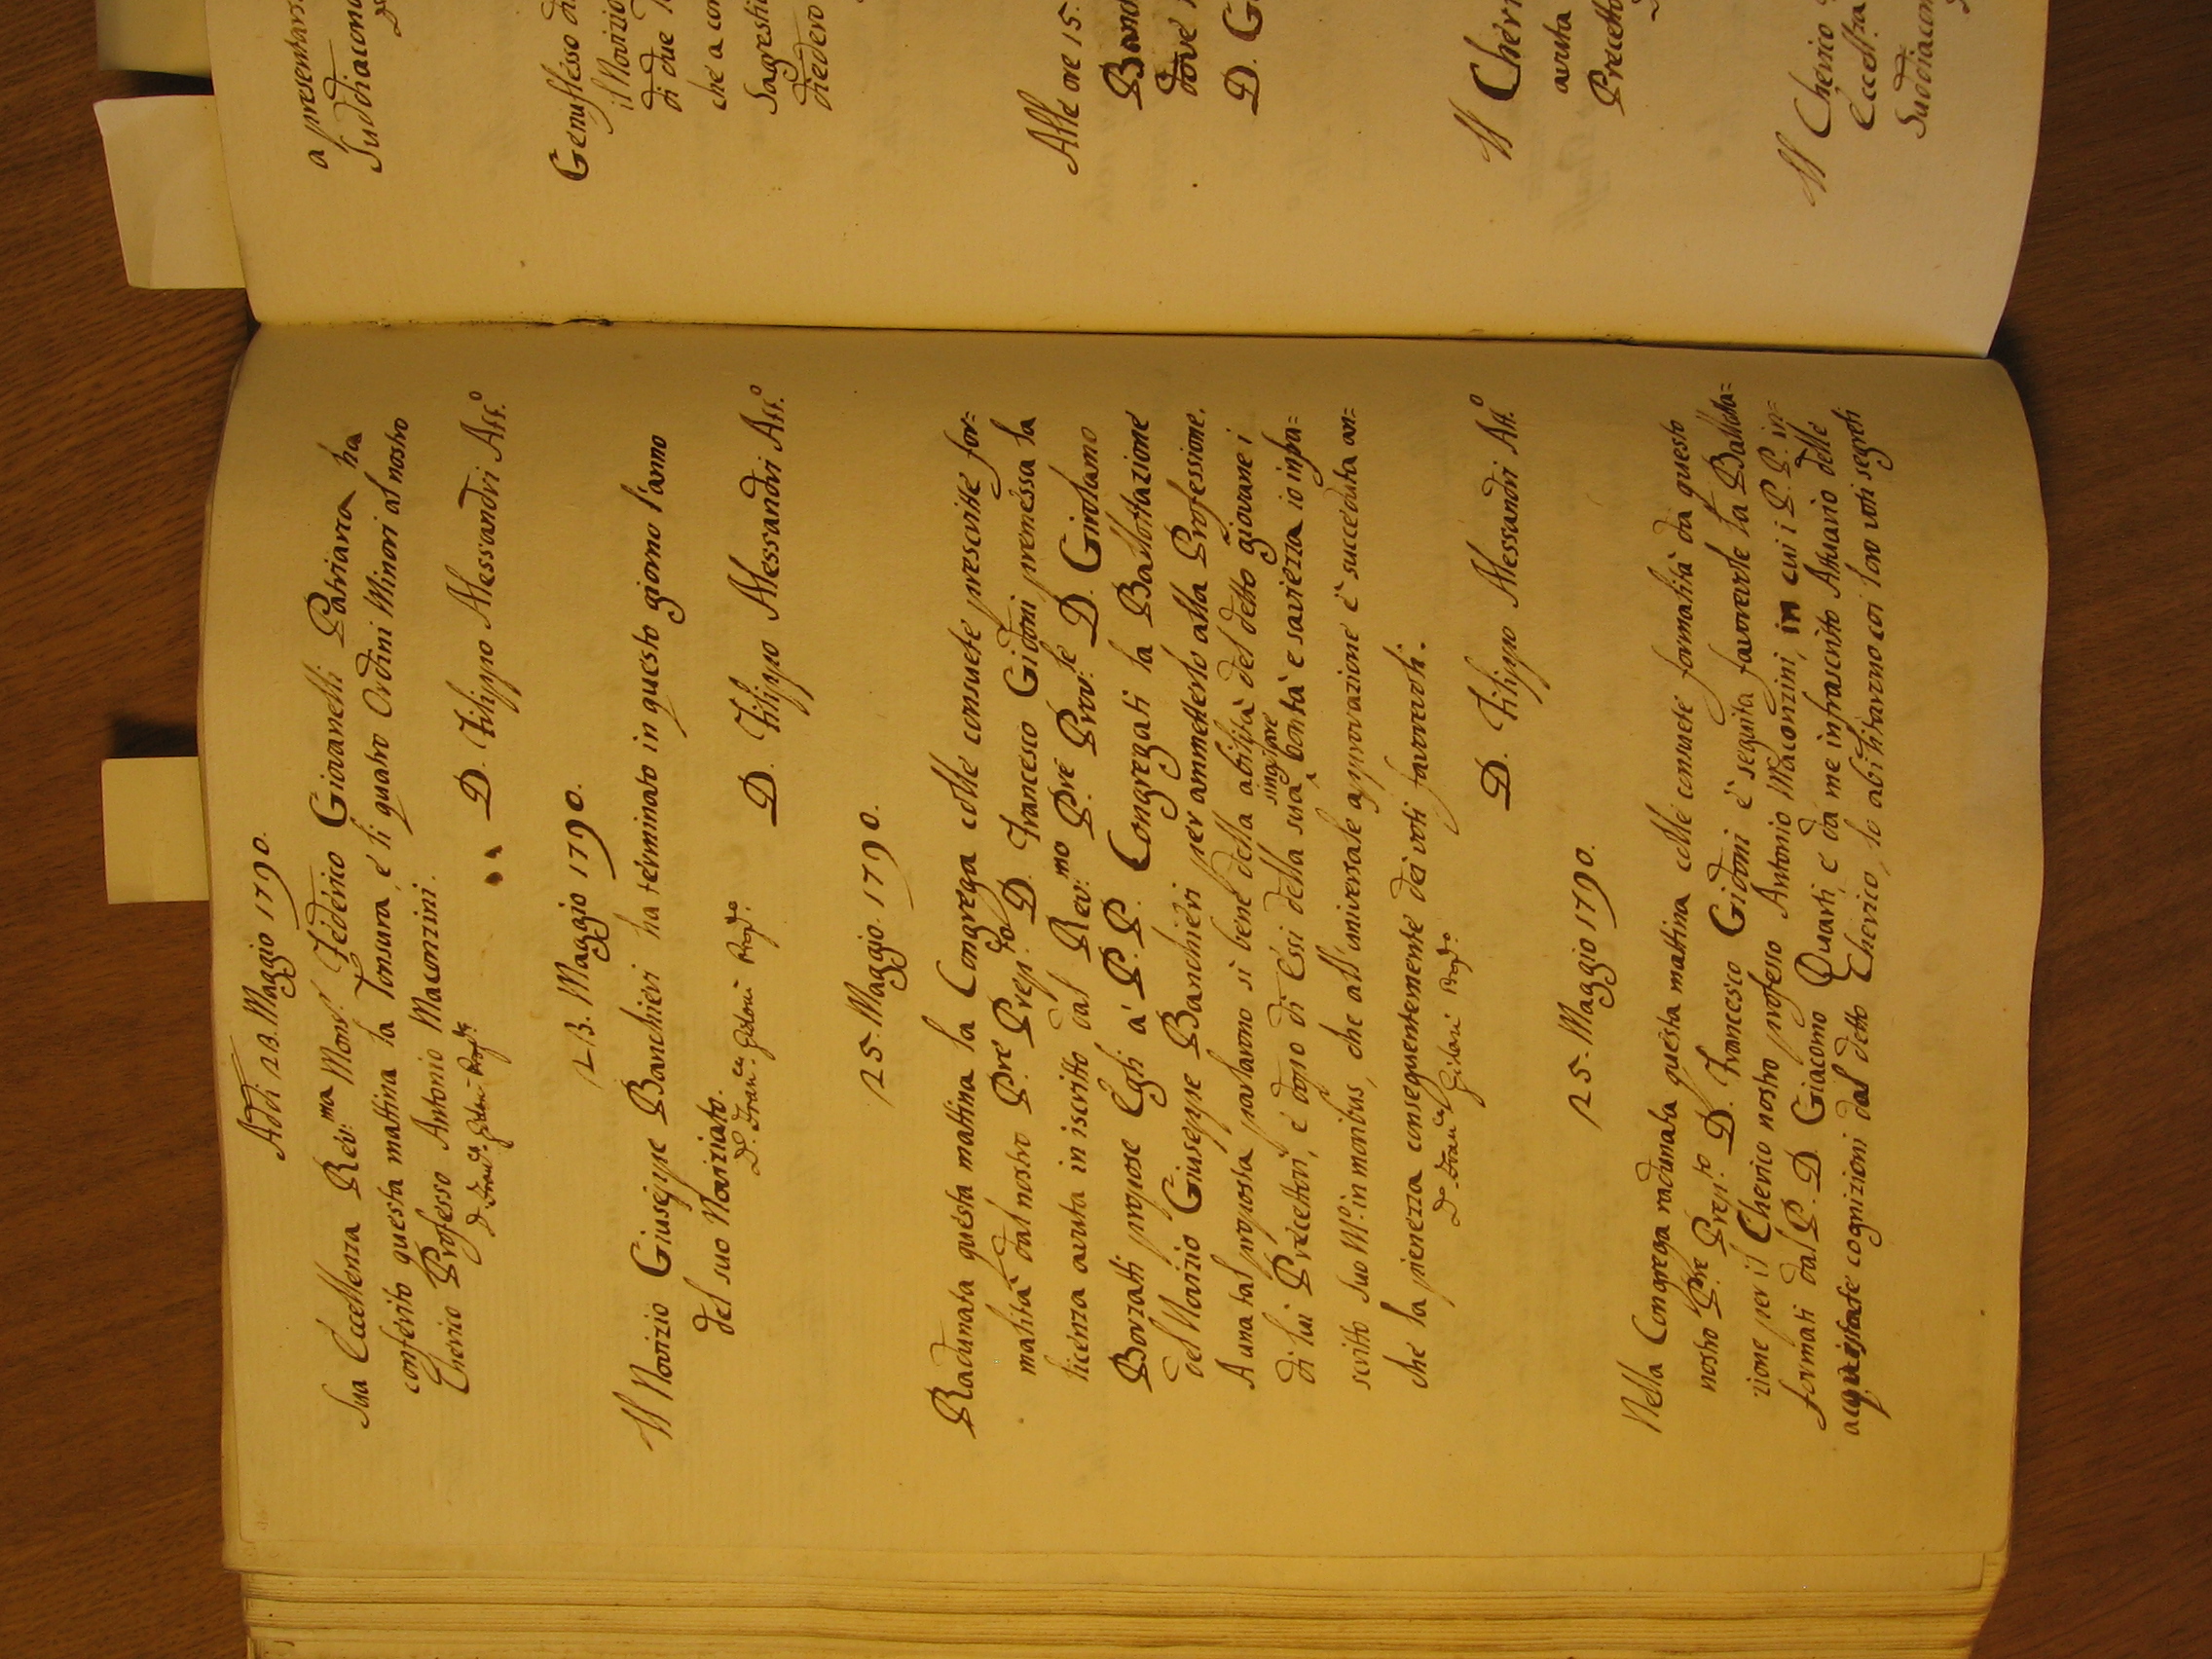 Addi 23. Maggio 1790.
Sua Eccellenza Rev:ma Mons.r Federico Giovanelli Patriarca ha
conferito questa mattina la Tonsura, e li quatro Ordini Minori al nostro
Cherico Professo Antonio Maconzini.
D. Fran.co Gidoni Prep.to
D. Filippo Alessandri Att.o
23. Maggio 1790.
Il Novizio Giuseppe Banchieri ha terminato in questo giorno l'anno
del suo Noviziato.
D. Fran.co Gidoni Prep.to
D. Filippo Alessandri Att.o
25. Maggio 1790.
Radunata questa mattina la Congrega colle consuete prescritte for=
malità dal nostro P.re Prep.to D. Francesco Gidoni premessa la
licenza avuta in iscritto dal Rev:mo P.re Prov:le D. Girolamo
Borzatti propose Egli a' P.P. Congregati la Ballottazione
del Novizio Giuseppe Banchieri per ammetterlo alla Professione.
A una tal proposta parlarono sì bene della abilità del detto giovane i
di lui Precettori, e dopo di Essi della sua singolare bontà e saviezza io infra=
scritto suo M.o in moribus, che all'universale approvazione è succeduta an=
che la pienezza conseguentemente dei voti favorevoli.
D. Fran.co Gidoni Prep.to
D. Filippo Alessandri Att.o
25. Maggio 1790.
Nella Congrega radunata questa mattina colle consuete formalità da questo
nostro P.re Prep.to D. Francesco Gidoni è seguita favorevole la Ballotta=
zione per il Cherico nostro professo Antonio Maconzini, in cui i P.P. in=
formati dal P. D. Giacomo Quarti, e da me infrascritto Attuario delle
acquistate cognizioni dal detto Cherico, lo abilitarono coi loro voti segreti
a presentars
Suddiacona
Genuflesso
il Novizio
di due
che a con
Sagresti
diedero
Alle ore 15.
Banc
dove
D. G
Il Cheri
avuta
Precetto
Il Cherico
Eccell.za
Suddiacon